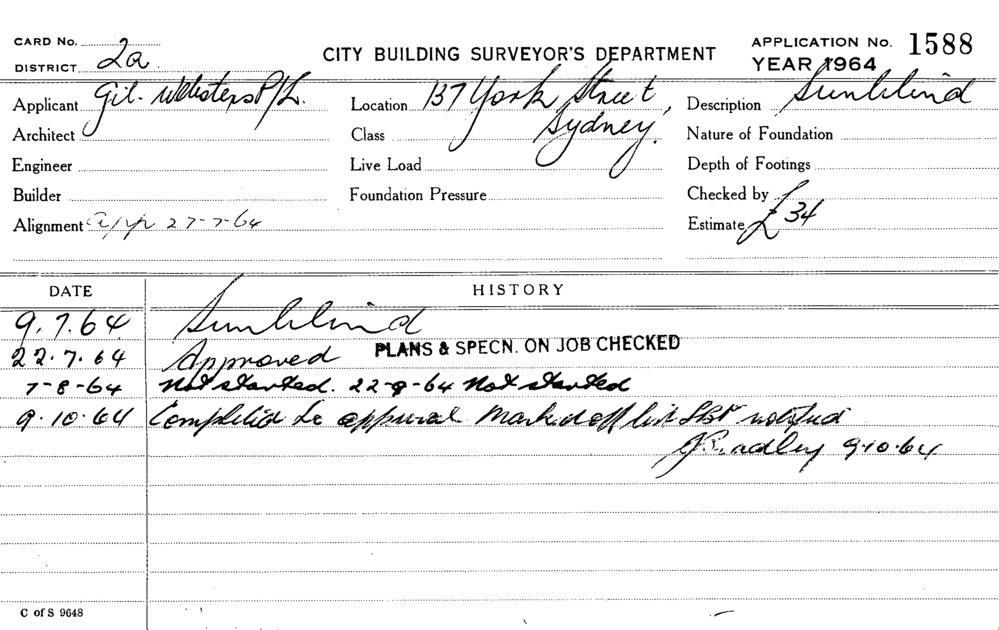 CARD No.
CITY BUILDING SURVEYOR'S DEPARTMENT
APPLICATION No. 1588
DISTRICT 2a
YEAR 1964
Applicant Gil. Websters P/L.
Location 137 York Street, Sydney.
Description Sunblind
Architect
Class
Nature of Foundation
Engineer
Live Load
Depth of Footings
Builder
Foundation Pressure
Checked by
Alignment app 27-7-64
Estimate £34
DATE HISTORY
9.7.64 Sunblind
22.7.64 Approved PLANS & SPECN. ON JOB CHECKED
7-8-64 Not started. 22-9-64 Not started
9.10.64 Completed to approval Marked off list notified
9.10.64
C of S 9648